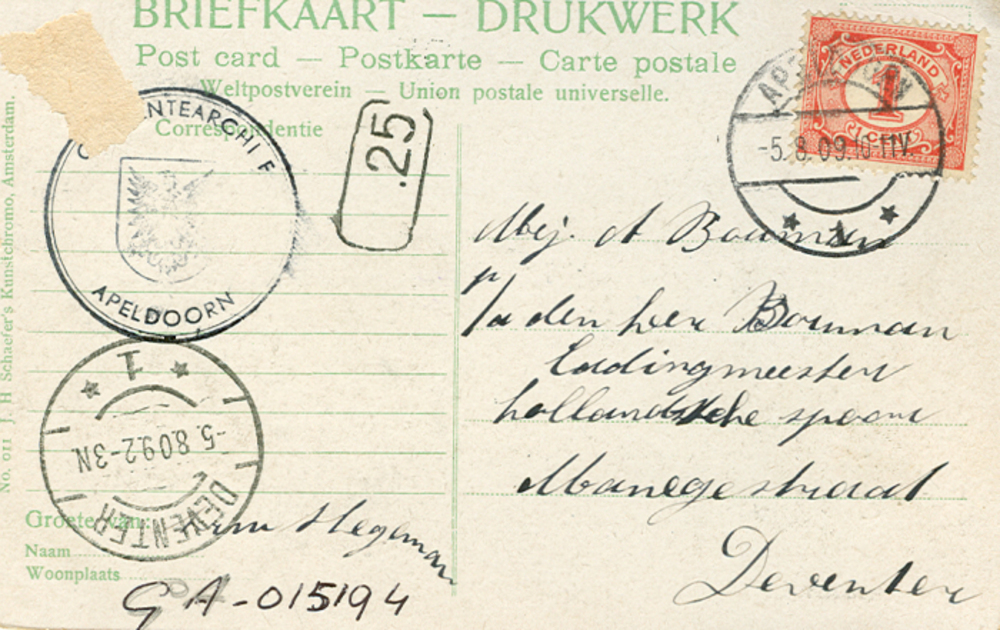 BRIEFKAART — DRUKWERK
Post card — Postkarte — Carte postale
Weltpostverein — Union postale universelle.
Correspondentie
NTEARCHIEF
APELDOORN
.25
NEDERLAND
1
1 CENT
-5.8.09.10-11V.
1
Mej. A Bouman
p/a den heer Bouman
Ladingmeester
hollandsche spoor
Manegestraat
Deventer
DEVENTER
1
-5.8.09.2-3N
Groete van:
Naam
Woonplaats
Hegeman
GA-015194
No. 011 J. H Schaefer's Kunstchromo, Amsterdam.